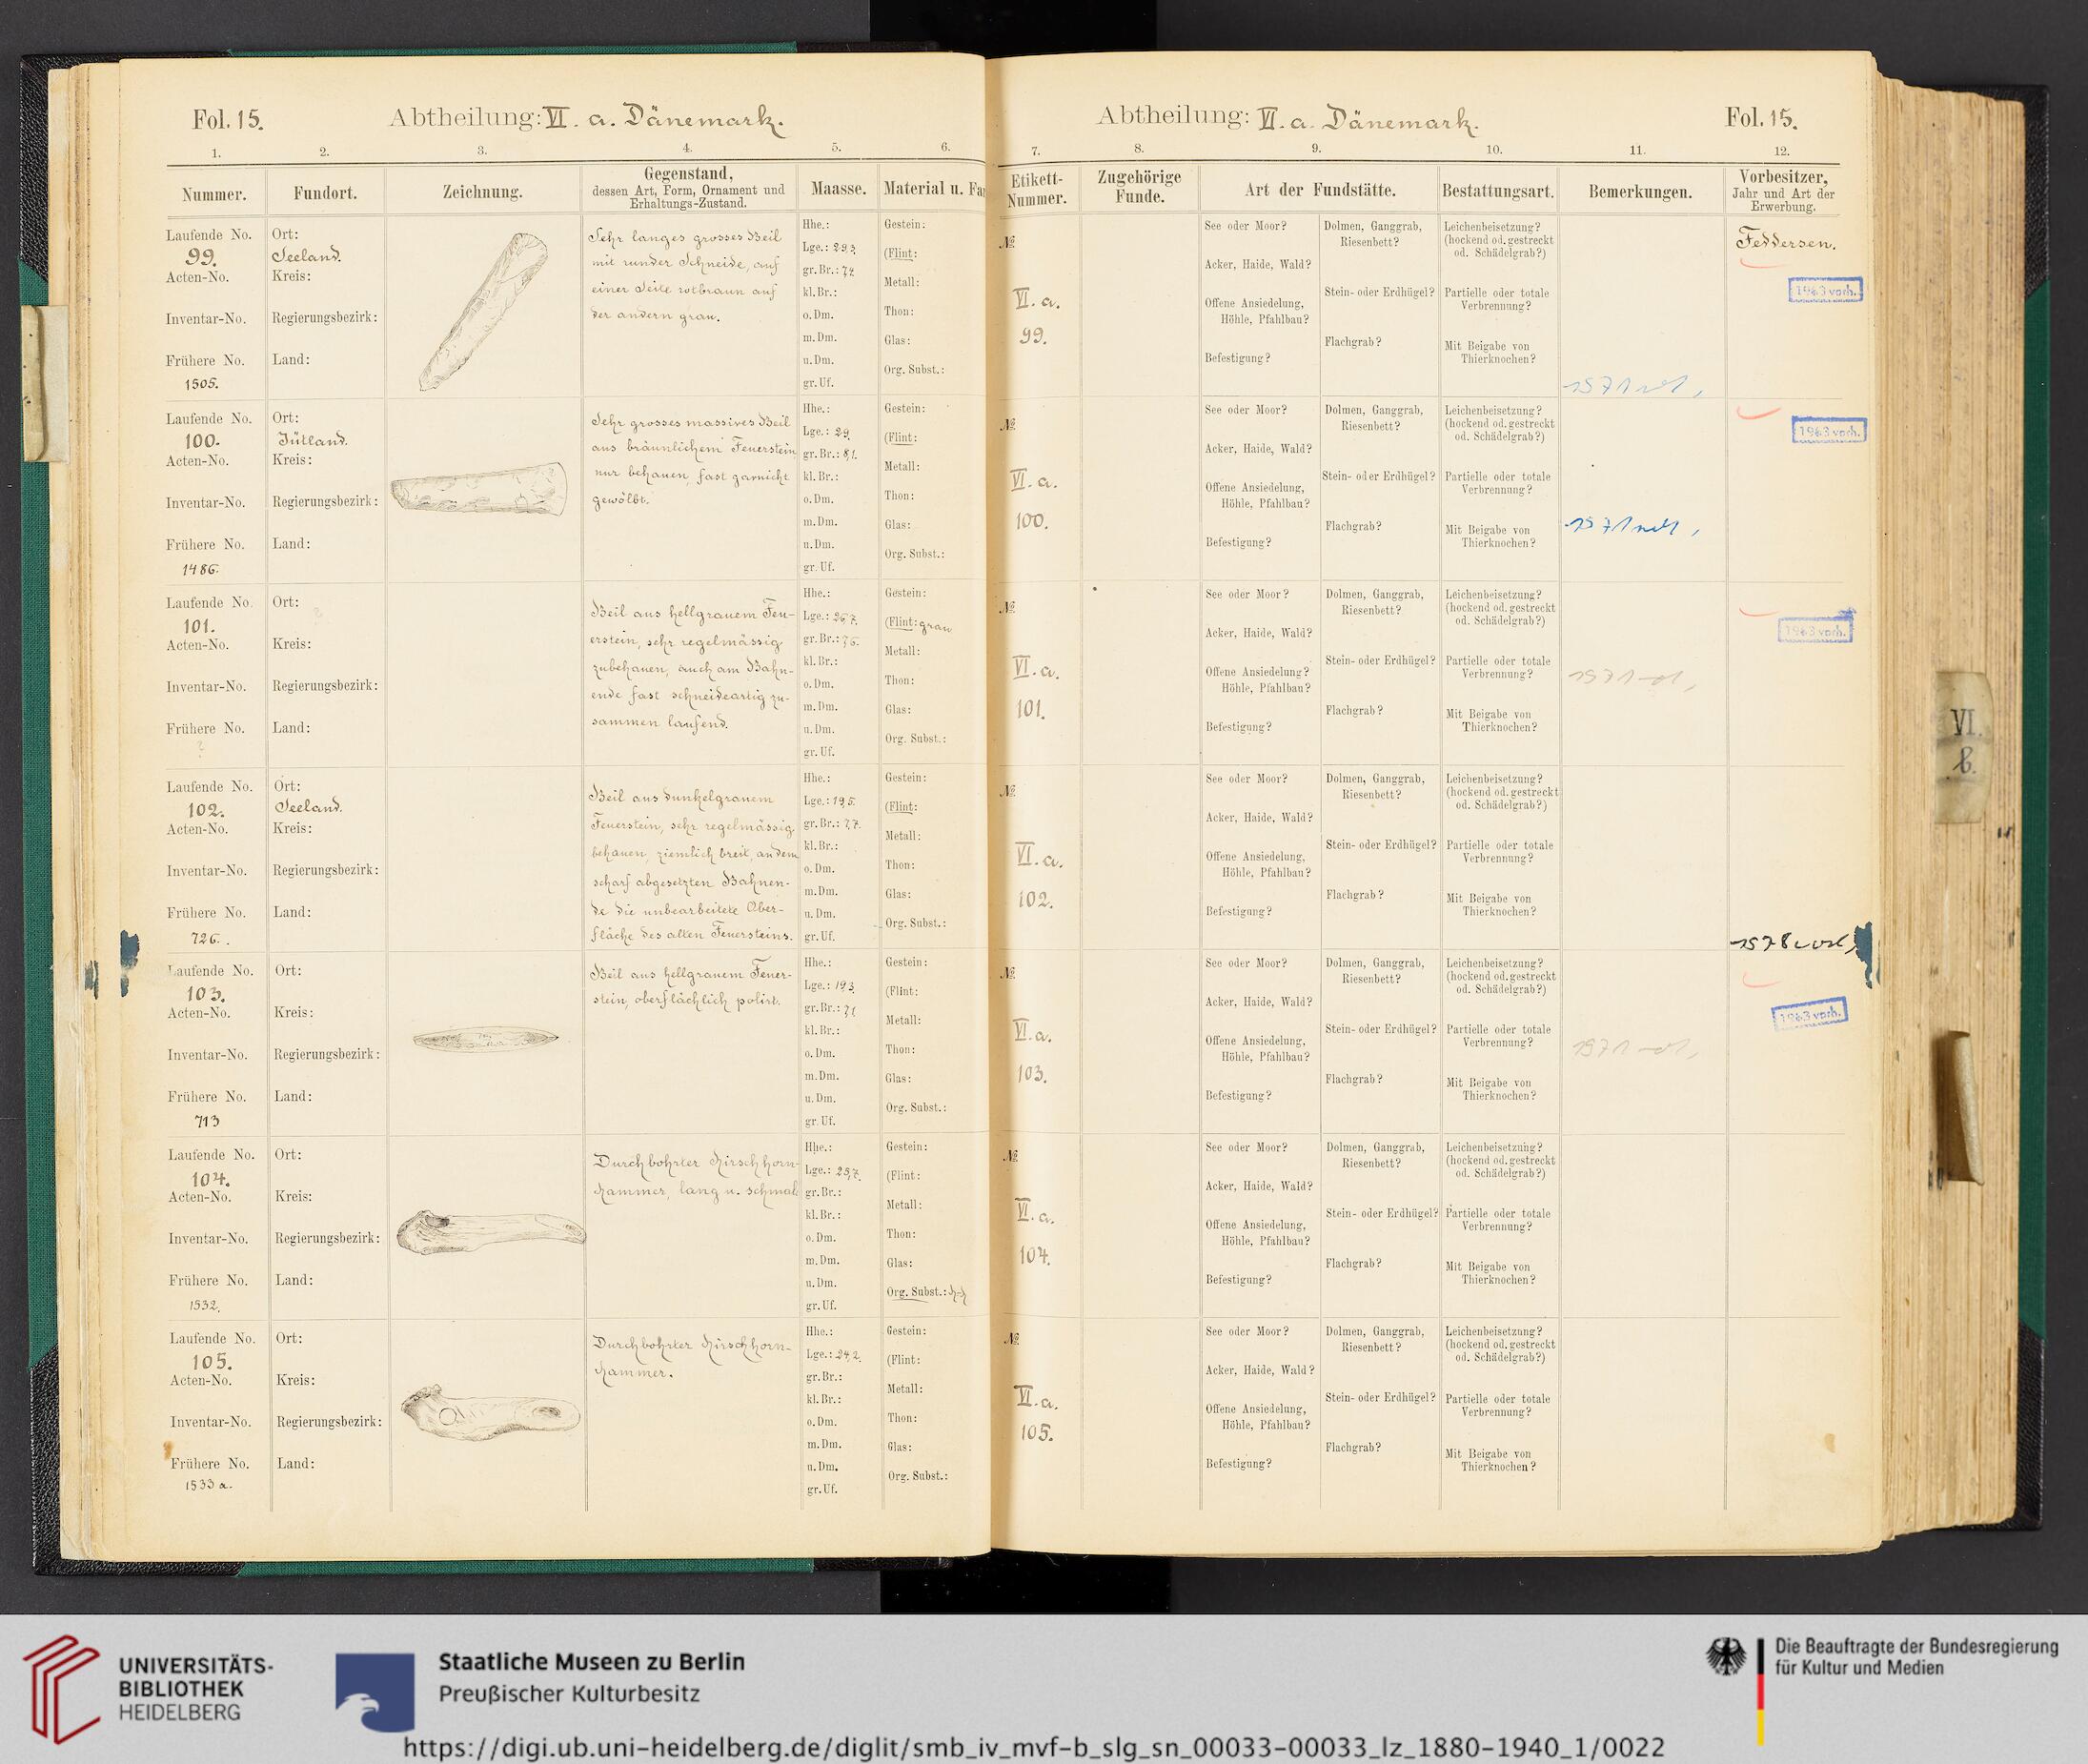 Fol. 15.
Abtheilung: VI. a. Dänemark.
1. 2. 3. 4. 5. 6.
Nummer. Fundort. Zeichnung. Gegenstand, dessen Art, Form, Ornament und Erhaltungs-Zustand. Maasse. Material u. Fa
Laufende No. 99.
Acten-No.
Inventar-No.
Frühere No. 1505.
Ort: Seeland.
Kreis:
Regierungsbezirk:
Land:
Sehr langes grosses Beil
mit runder Schneide, auf
einer Seite rotbraun auf
der andern grau.
Hhe.:
Lge.: 29,3.
gr. Br.: 7,2.
kl. Br.:
o. Dm.
m. Dm.
u. Dm.
gr. Uf.
Gestein:
(Flint:
Metall:
Thon:
Glas:
Org. Subst.:
Laufende No. 100.
Acten-No.
Inventar-No.
Frühere No. 1486.
Ort: Jütland.
Kreis:
Regierungsbezirk:
Land:
Sehr grosses massives Beil
aus bräunlichem Feuerstein
nur behauen, fast garnicht
gewölbt.
Hhe.:
Lge.: 29.
gr. Br.: 8,1.
kl. Br.:
o. Dm.
m. Dm.
u. Dm.
gr. Uf.
Gestein:
(Flint:
Metall:
Thon:
Glas:
Org. Subst.:
Laufende No. 101.
Acten-No.
Inventar-No.
Frühere No.
?
Ort:
Kreis:
Regierungsbezirk:
Land:
Beil aus hellgrauem Feu-
erstein, sehr regelmässig
zubehauen, auch am Bahn-
ende fast schneideartig zu-
sammen laufend.
Hhe.:
Lge.: 26,7.
gr. Br.: 7,6.
kl. Br.:
o. Dm.
m. Dm.
u. Dm.
gr. Uf.
Gestein:
(Flint: grau
Metall:
Thon:
Glas:
Org. Subst.:
Laufende No. 102.
Acten-No.
Inventar-No.
Frühere No. 726.
Ort: Seeland.
Kreis:
Regierungsbezirk:
Land:
Beil aus dunkelgrauem
Feuerstein, sehr regelmässig
behauen, ziemlich breit, an dem
scharf abgesetzten Bahnen-
de die unbearbeitete Ober-
fläche des alten Feuersteins.
Hhe.:
Lge.: 19,5.
gr. Br.: 7,7.
kl. Br.:
o. Dm.
m. Dm.
u. Dm.
gr. Uf.
Gestein:
(Flint:
Metall:
Thon:
Glas:
Org. Subst.:
Laufende No. 103.
Acten-No.
Inventar-No.
Frühere No. 713
Ort:
Kreis:
Regierungsbezirk:
Land:
Beil aus hellgrauem Feuer-
stein, oberflächlich polirt.
Hhe.:
Lge.: 19,3.
gr. Br.: 7,1
kl. Br.:
o. Dm.
m. Dm.
u. Dm.
gr. Uf.
Gestein:
(Flint:
Metall:
Thon:
Glas:
Org. Subst.:
Laufende No. 104.
Acten-No.
Inventar-No.
Frühere No. 1532.
Ort:
Kreis:
Regierungsbezirk:
Land:
Durchbohrter Hirschhorn-
hammer, lang u. schmal
Hhe.:
Lge.: 25,7.
gr. Br.:
kl. Br.:
o. Dm.
m. Dm.
u. Dm.
gr. Uf.
Gestein:
(Flint:
Metall:
Thon:
Glas:
Org. Subst.:
Laufende No. 105.
Acten-No.
Inventar-No.
Frühere No. 1533 a.
Ort:
Kreis:
Regierungsbezirk:
Land:
Durchbohrter Hirschhorn-
hammer.
Hhe.:
Lge.: 24,2.
gr. Br.:
kl. Br.:
o. Dm.
m. Dm.
u. Dm.
gr. Uf.
Gestein:
(Flint:
Metall:
Thon:
Glas:
Org. Subst.:
Abtheilung: VI. a. Dänemark.
Fol. 15.
7. 8. 9. 10. 11. 12.
Etikett-Nummer. Zugehörige Funde. Art der Fundstätte. Bestattungsart. Bemerkungen. Vorbesitzer, Jahr und Art der Erwerbung.
№
VI. a.
99.
See oder Moor?
Acker, Haide, Wald?
Offene Ansiedelung,
Höhle, Pfahlbau?
Befestigung?
Dolmen, Ganggrab,
Riesenbett?
Stein- oder Erdhügel?
Flachgrab?
Leichenbeisetzung?
(hockend od. gestreckt
od. Schädelgrab?)
Partielle oder totale
Verbrennung?
Mit Beigabe von
Thierknochen?
Feddersen.
1963 vorh.
№
VI. a.
100.
See oder Moor?
Acker, Haide, Wald?
Offene Ansiedelung,
Höhle, Pfahlbau?
Befestigung?
Dolmen, Ganggrab,
Riesenbett?
Stein- oder Erdhügel?
Flachgrab?
Leichenbeisetzung?
(hockend od. gestreckt
od. Schädelgrab?)
Partielle oder totale
Verbrennung?
Mit Beigabe von
Thierknochen?
1963 vorh.
№
VI. a.
101.
See oder Moor?
Acker, Haide, Wald?
Offene Ansiedelung?
Höhle, Pfahlbau?
Befestigung?
Dolmen, Ganggrab,
Riesenbett?
Stein- oder Erdhügel?
Flachgrab?
Leichenbeisetzung?
(hockend od. gestreckt
od. Schädelgrab?)
Partielle oder totale
Verbrennung?
Mit Beigabe von
Thierknochen?
1963 vorh.
№
VI. a.
102.
See oder Moor?
Acker, Haide, Wald?
Offene Ansiedelung,
Höhle, Pfahlbau?
Befestigung?
Dolmen, Ganggrab,
Riesenbett?
Stein- oder Erdhügel?
Flachgrab?
Leichenbeisetzung?
(hockend od. gestreckt
od. Schädelgrab?)
Partielle oder totale
Verbrennung?
Mit Beigabe von
Thierknochen?
№
VI. a.
103.
See oder Moor?
Acker, Haide, Wald?
Offene Ansiedelung,
Höhle, Pfahlbau?
Befestigung?
Dolmen, Ganggrab,
Riesenbett?
Stein- oder Erdhügel?
Flachgrab?
Leichenbeisetzung?
(hockend od. gestreckt
od. Schädelgrab?)
Partielle oder totale
Verbrennung?
Mit Beigabe von
Thierknochen?
1963 vorh.
№
VI. a.
104.
See oder Moor?
Acker, Haide, Wald?
Offene Ansiedelung,
Höhle, Pfahlbau?
Befestigung?
Dolmen, Ganggrab,
Riesenbett?
Stein- oder Erdhügel?
Flachgrab?
Leichenbeisetzung?
(hockend od. gestreckt
od. Schädelgrab?)
Partielle oder totale
Verbrennung?
Mit Beigabe von
Thierknochen?
№
VI. a.
105.
See oder Moor?
Acker, Haide, Wald?
Offene Ansiedelung,
Höhle, Pfahlbau?
Befestigung?
Dolmen, Ganggrab,
Riesenbett?
Stein- oder Erdhügel?
Flachgrab?
Leichenbeisetzung?
(hockend od. gestreckt
od. Schädelgrab?)
Partielle oder totale
Verbrennung?
Mit Beigabe von
Thierknochen?
VI.
b.
UNIVERSITÄTS-
BIBLIOTHEK
HEIDELBERG
Staatliche Museen zu Berlin
Preußischer Kulturbesitz
Die Beauftragte der Bundesregierung
für Kultur und Medien
https://digi.ub.uni-heidelberg.de/diglit/smb_iv_mvf-b_slg_sn_00033-00033_lz_1880-1940_1/0022